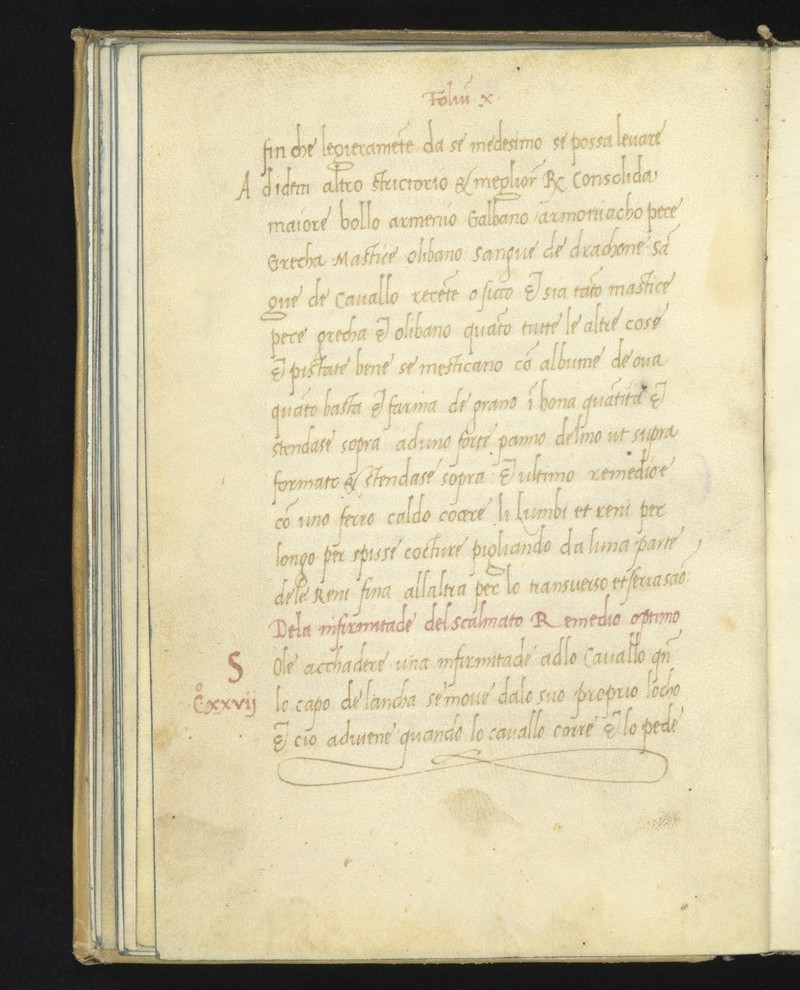 Foliū · x ·
fin che legieramēte da se medesimo se possa levare
A d idem altro strictorio & meglior ℞ Consolida
maiore bollo armenio Galbano armoniacho pece
Grecha Mastice olibano sangue de drachone sā
gue de Cavallo recēte o sicco & sia tāto mastice
pece grecha & olibano quāto tutte le altre cose
& pistate bene se mesticano cō albume de ova
quāto basta & farina de grano ī bona quātità &
stendase sopra ad uno forte panno de lino ut supra
formato & stendase sopra & ultimo remedio e
cō uno ferro caldo cocere li lumbi et reni per
longo per spisse cocture pigliando da luna parte
dele Reni fina allaltra per lo transverso et seria saō:
Dela infirmitade del scalmato Remedio optimo
S ole acchadere una infirmitade ad lo Cavallo qn̄
C̊xxvij lo capo de lancha se move dalo suo proprio locho
& cio advene quando lo cavallo corre & lo pede